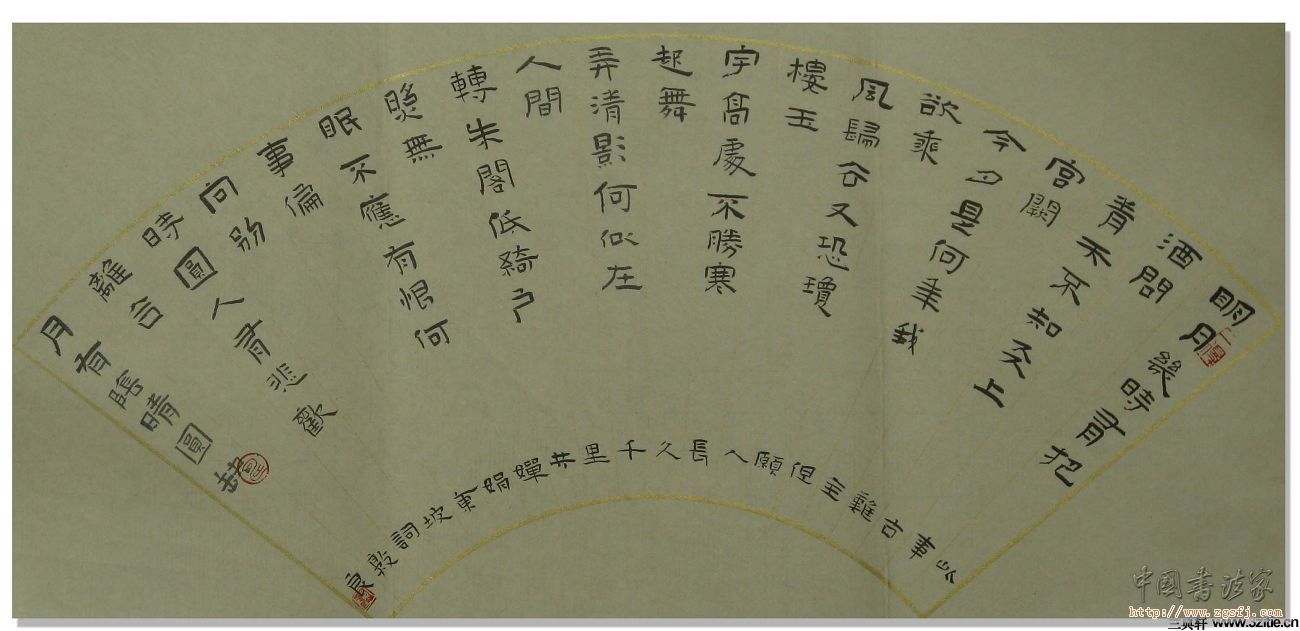 明月幾時有把
酒問
青天不知天上
宮闕
今夕是何年我
欲乘
風歸去又恐瓊
樓玉
宇高處不勝寒
起舞
弄清影何似在
人間
轉朱閣低綺户
照無
眠不應有恨何
事偏
向別
時圓人有悲歡
離合
月有陰晴圓缺
此事古難全但願人長久千里共嬋娟東坡詞
中国书法家
http://www.zgsfj.com
www.32tie.cn